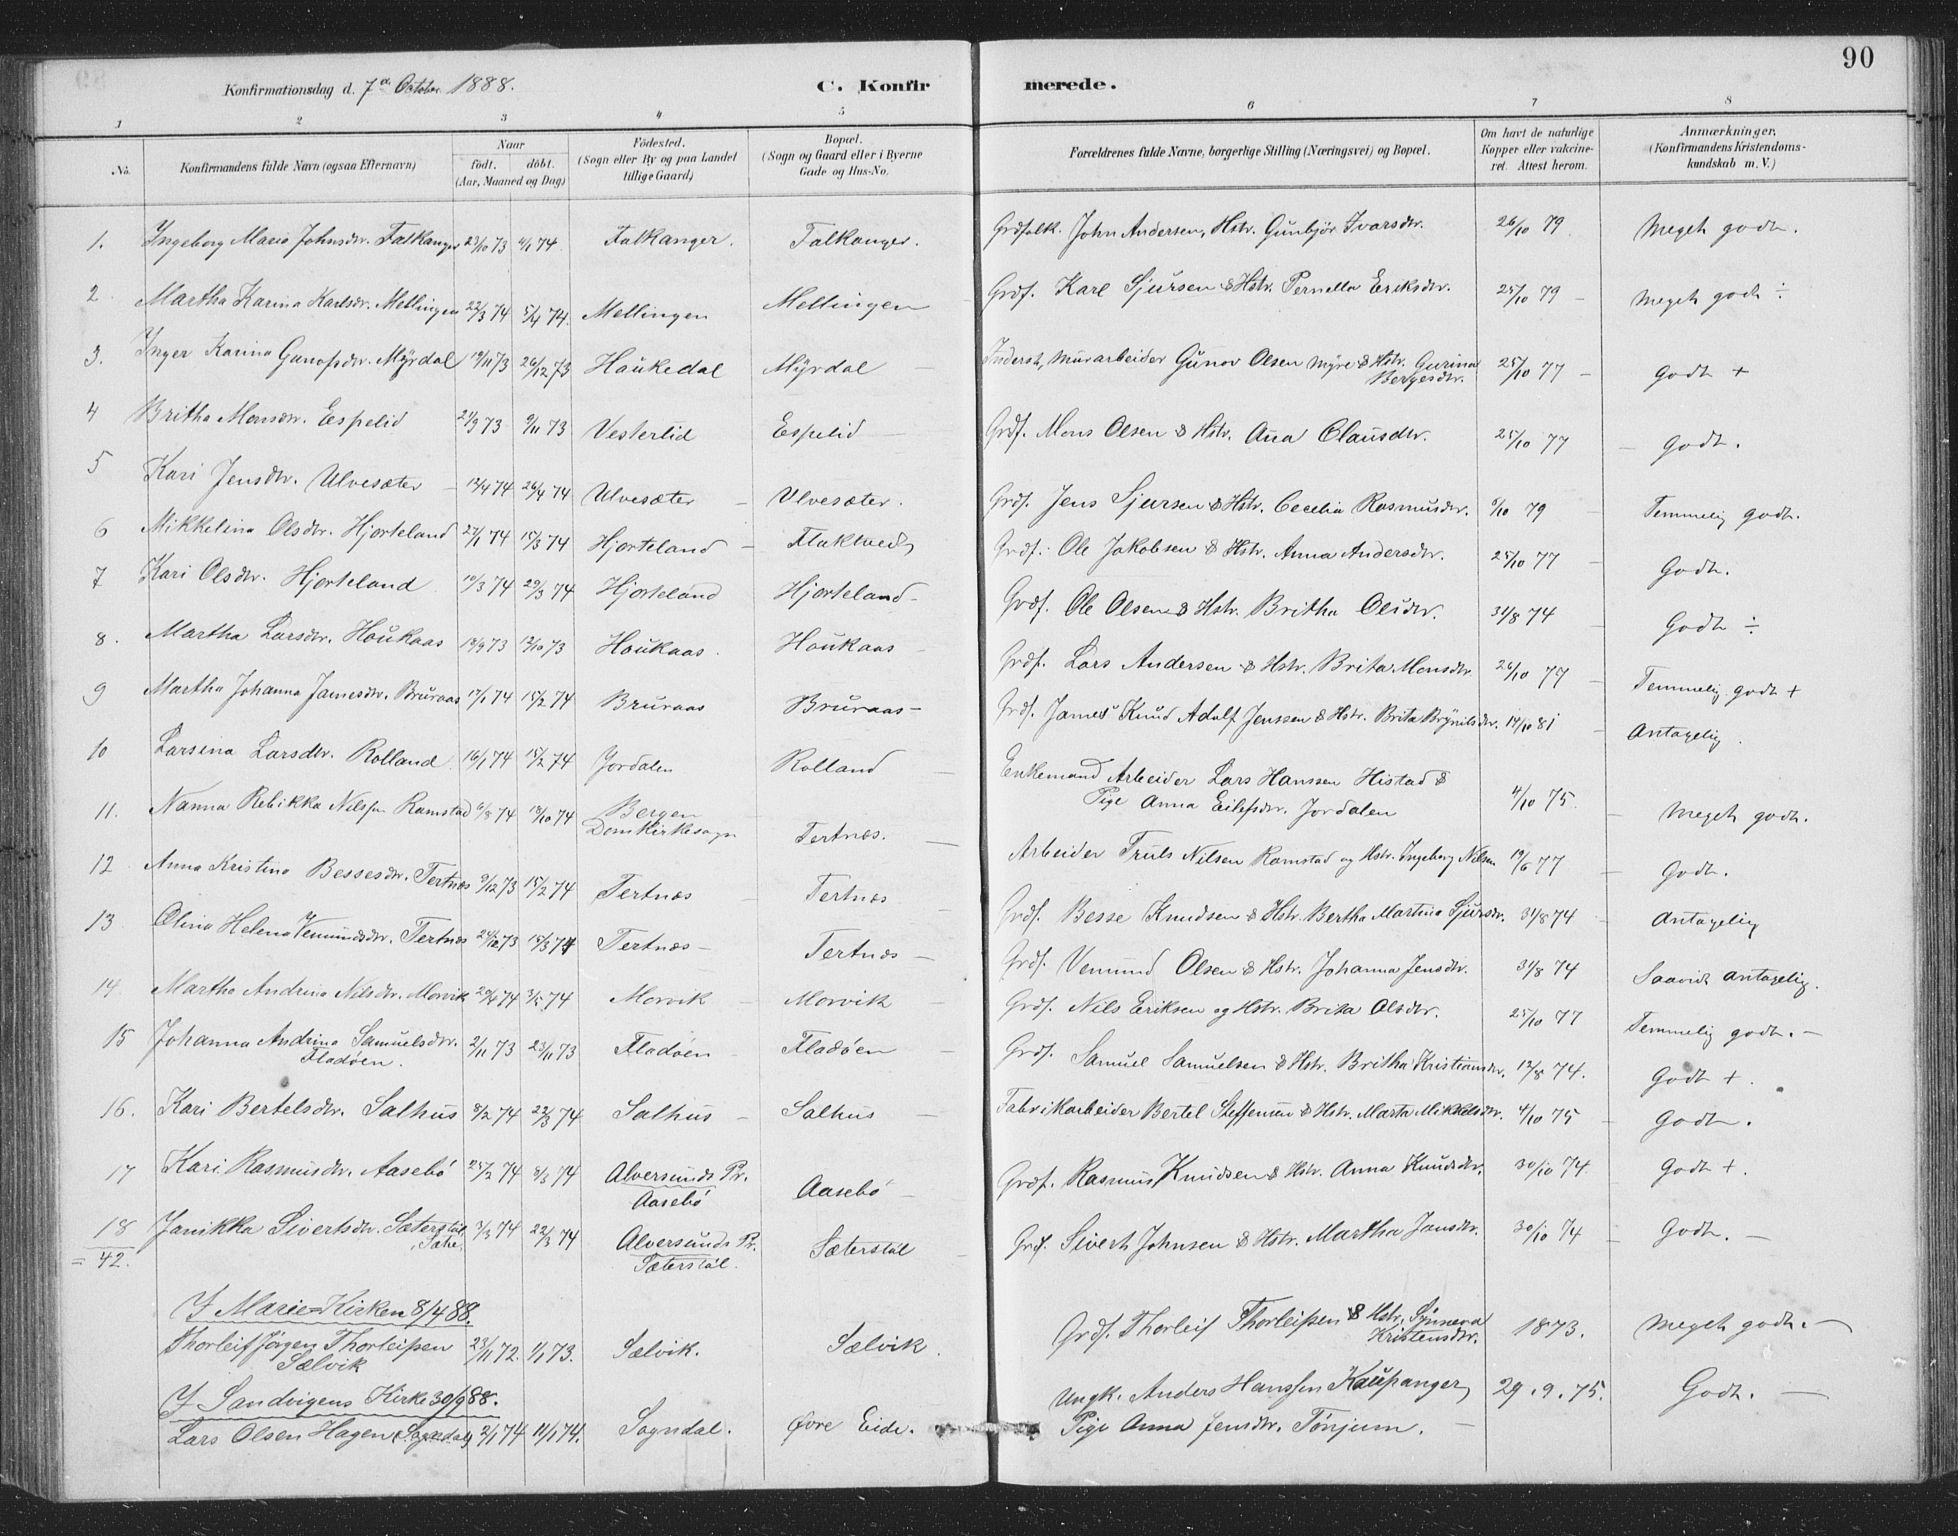 90
Konfirmationsdag d. 7de October 1888. C. Konfirmerede.
1 2 3 4 5 6 7 8
No. Konfirmandens fulde Navn (ogsaa Efternavn) Naar födt. döbt. (Aar, Maaned og Dag) Födested. (Sogn eller By og paa Landet tillige Gaard) Bopæl. (Sogn og Gaard eller i Byerne Gade og Hus-No. Forældrenes fulde Navne, borgerlige Stilling (Næringsvei) og Bopæl. Om havt de naturlige Kopper eller vakcineret. Attest herom. Anmærkninger, (Konfirmandens Kristendomskundskab m. V.)
1. Ingeborg Maria Johnsdtr. Falkanger 23/10 73 4/1 74 Falkanger. Falkanger. Grdfolk. John Andersen, Hstr. Gunbjör Ivarsdtr. 26/10 79 Meget godt.
2 Martha Karina Karlsdtr. Mellingen 22/3 74 5/4 74. Mellingen Mellingen Grdf. Karl Sjursen & Hstr. Pernella Eriksdtr. 25/10 79 - Meget godt ÷
3. Inger Karina Gunofsdtr. Myrdal 19/11 73 26/12 73 Haukedal Myrdal - Inderst, Murarbeider Gunov Olsen Myre & Hstr. Gurina Bergesdtr. 25/10 77 - Godt +
4 Britha Monsdtr. Espelid 21/9 73 9/11 73 Vesterlid Espelid - Grdf. Mons Olsen & Hstr. Ana Clausdtr. 25/10 77 - Godt.
5 Kari Jensdtr. Ulvesæter - 12/4 74 26/4 74 Ulvesæter - Ulvesæter. Grdf. Jens Sjursen & Hstr. Cecelia Rasmusdtr. 6/10 79 Temmelig godt.
6 Mikkelina Olsdtr. Hjorteland 27/1 74 15/3 74 Hjorteland - Flaktved Grdf. Ole Jakobsen & Hstr. Anna Andersdtr. 25/10 77 - Godt.
7 Kari Olsdtr. Hjorteland 10/3 74 29/3 74 Hjorteland Hjorteland - Grdf. Ole Olsen & Hstr. Britha Olsdtr. 31/8 74 - Godt ÷
8. Martha Larsdtr. Houkaas 14/9 73 12/10 73 Houkaas. Houkaas - Grdf. Lars Andersen & Hstr. Brita Monsdtr 26/10 77 - Temmelig godt +
9 Martha Johanna Jamesdtr. Bruraas 17/1 74 15/2 74 Bruraas Bruraas - Grdf. James Knud Adolf Jenssen & Hstr. Brita Brynilsdtr. 14/10 81 - Antagelig.
10 Larsina Larsdtr. Rolland 16/1 74 15/2 74 Jordalen Rolland - Enkemand Arbeider Lars Hanssen Histad &
Pige Anna Eilefsdtr. Jordalen 4/10 75. - Meget godt.
11. Nanna Rebikka Nilsen Ramstad 6/8 74 18/10 74 Bergen Domkirkesogn Tertnæs. - Arbeider Truls Nilsen Ramstad og Hstr. Ingeborg Nilsen 19/6 77 - Godt.
12 Anna Kristina Bessesdtr. Tertnæs 9/12 73 15/2 74 Tertnæs Tertnæs - Grdf. Besse Knudsen & Hstr. Bertha Martina Sjursdtr. 31/8 74 - Antagelig
13 Olina Helena Vemundsdtr. Tertnæs 24/12 73 15/3 74 Tertnæs - Tertnæs - Grdf. Vemund Olsen & Hstr. Johanna Jensdtr. 31/8 74 Saavidt antagelig.
14. Martha Andrina Nilsdtr. Morvik 20/4 74 3/5 74 Morvik - Morvik - Grdf. Nils Eriksen og Hstr. Brita Olsdtr. 25/10 77 Temmelig godt. -
15 Johanna Andrina Samuelsdtr. Fladöen. 2/11 73 23/11 73 Fladöen - Fladöen - Grdf. Samuel Samuelsen & Hstr. Britha Kristiansdtr. 12/8 74. Godt +.
16. Kari Bertelsdtr. Salhus 8/2 74 22/3 74 Salhus - Salhus - Fabrikarbeider Bertel Steffensen & Hstr. Marta Mikkelsdtr. 4/10 75 - Godt.
17 Kari Rasmusdtr. Aasebö 25/2 74 8/3 74 Alversunds Pr. Aasebö Aasebö - Grdf. Rasmus Knudsen & Hstr. Anna Knudsdtr. 30/10 74 Godt +.
18 Janikka Sivertsdtr. Sæterstöl, Sæhe 3/3 74 22/3 74 Alversunds Pr. Sæterstöl. Sæterstöl - Grdf. Sivert Johnsen & Hstr. Martha Jansdtr. 30/10 74 - Godt. -
= 42.
I Marie=Kirken 8/4 88.
Thorleif Jörgen Thorleifsen Sælvik 23/11 72. 1/1 73. Sælvik. Sælvik. Grdf. Thorleif Thorleifsen & Hstr. Synneva Kristensdtr. 1873. Meget godt. -
I Sandvigens Kirke 30/9 88.
Lars Olsen Hagen (Sogndal) 2/1 74 11/1 74. Sogndal. Øvre Eide. Ungk. Anders Hanssen Kaupanger,
Pige Anna Jensdtr. Tönjum. - 29.9.75. Godt. -